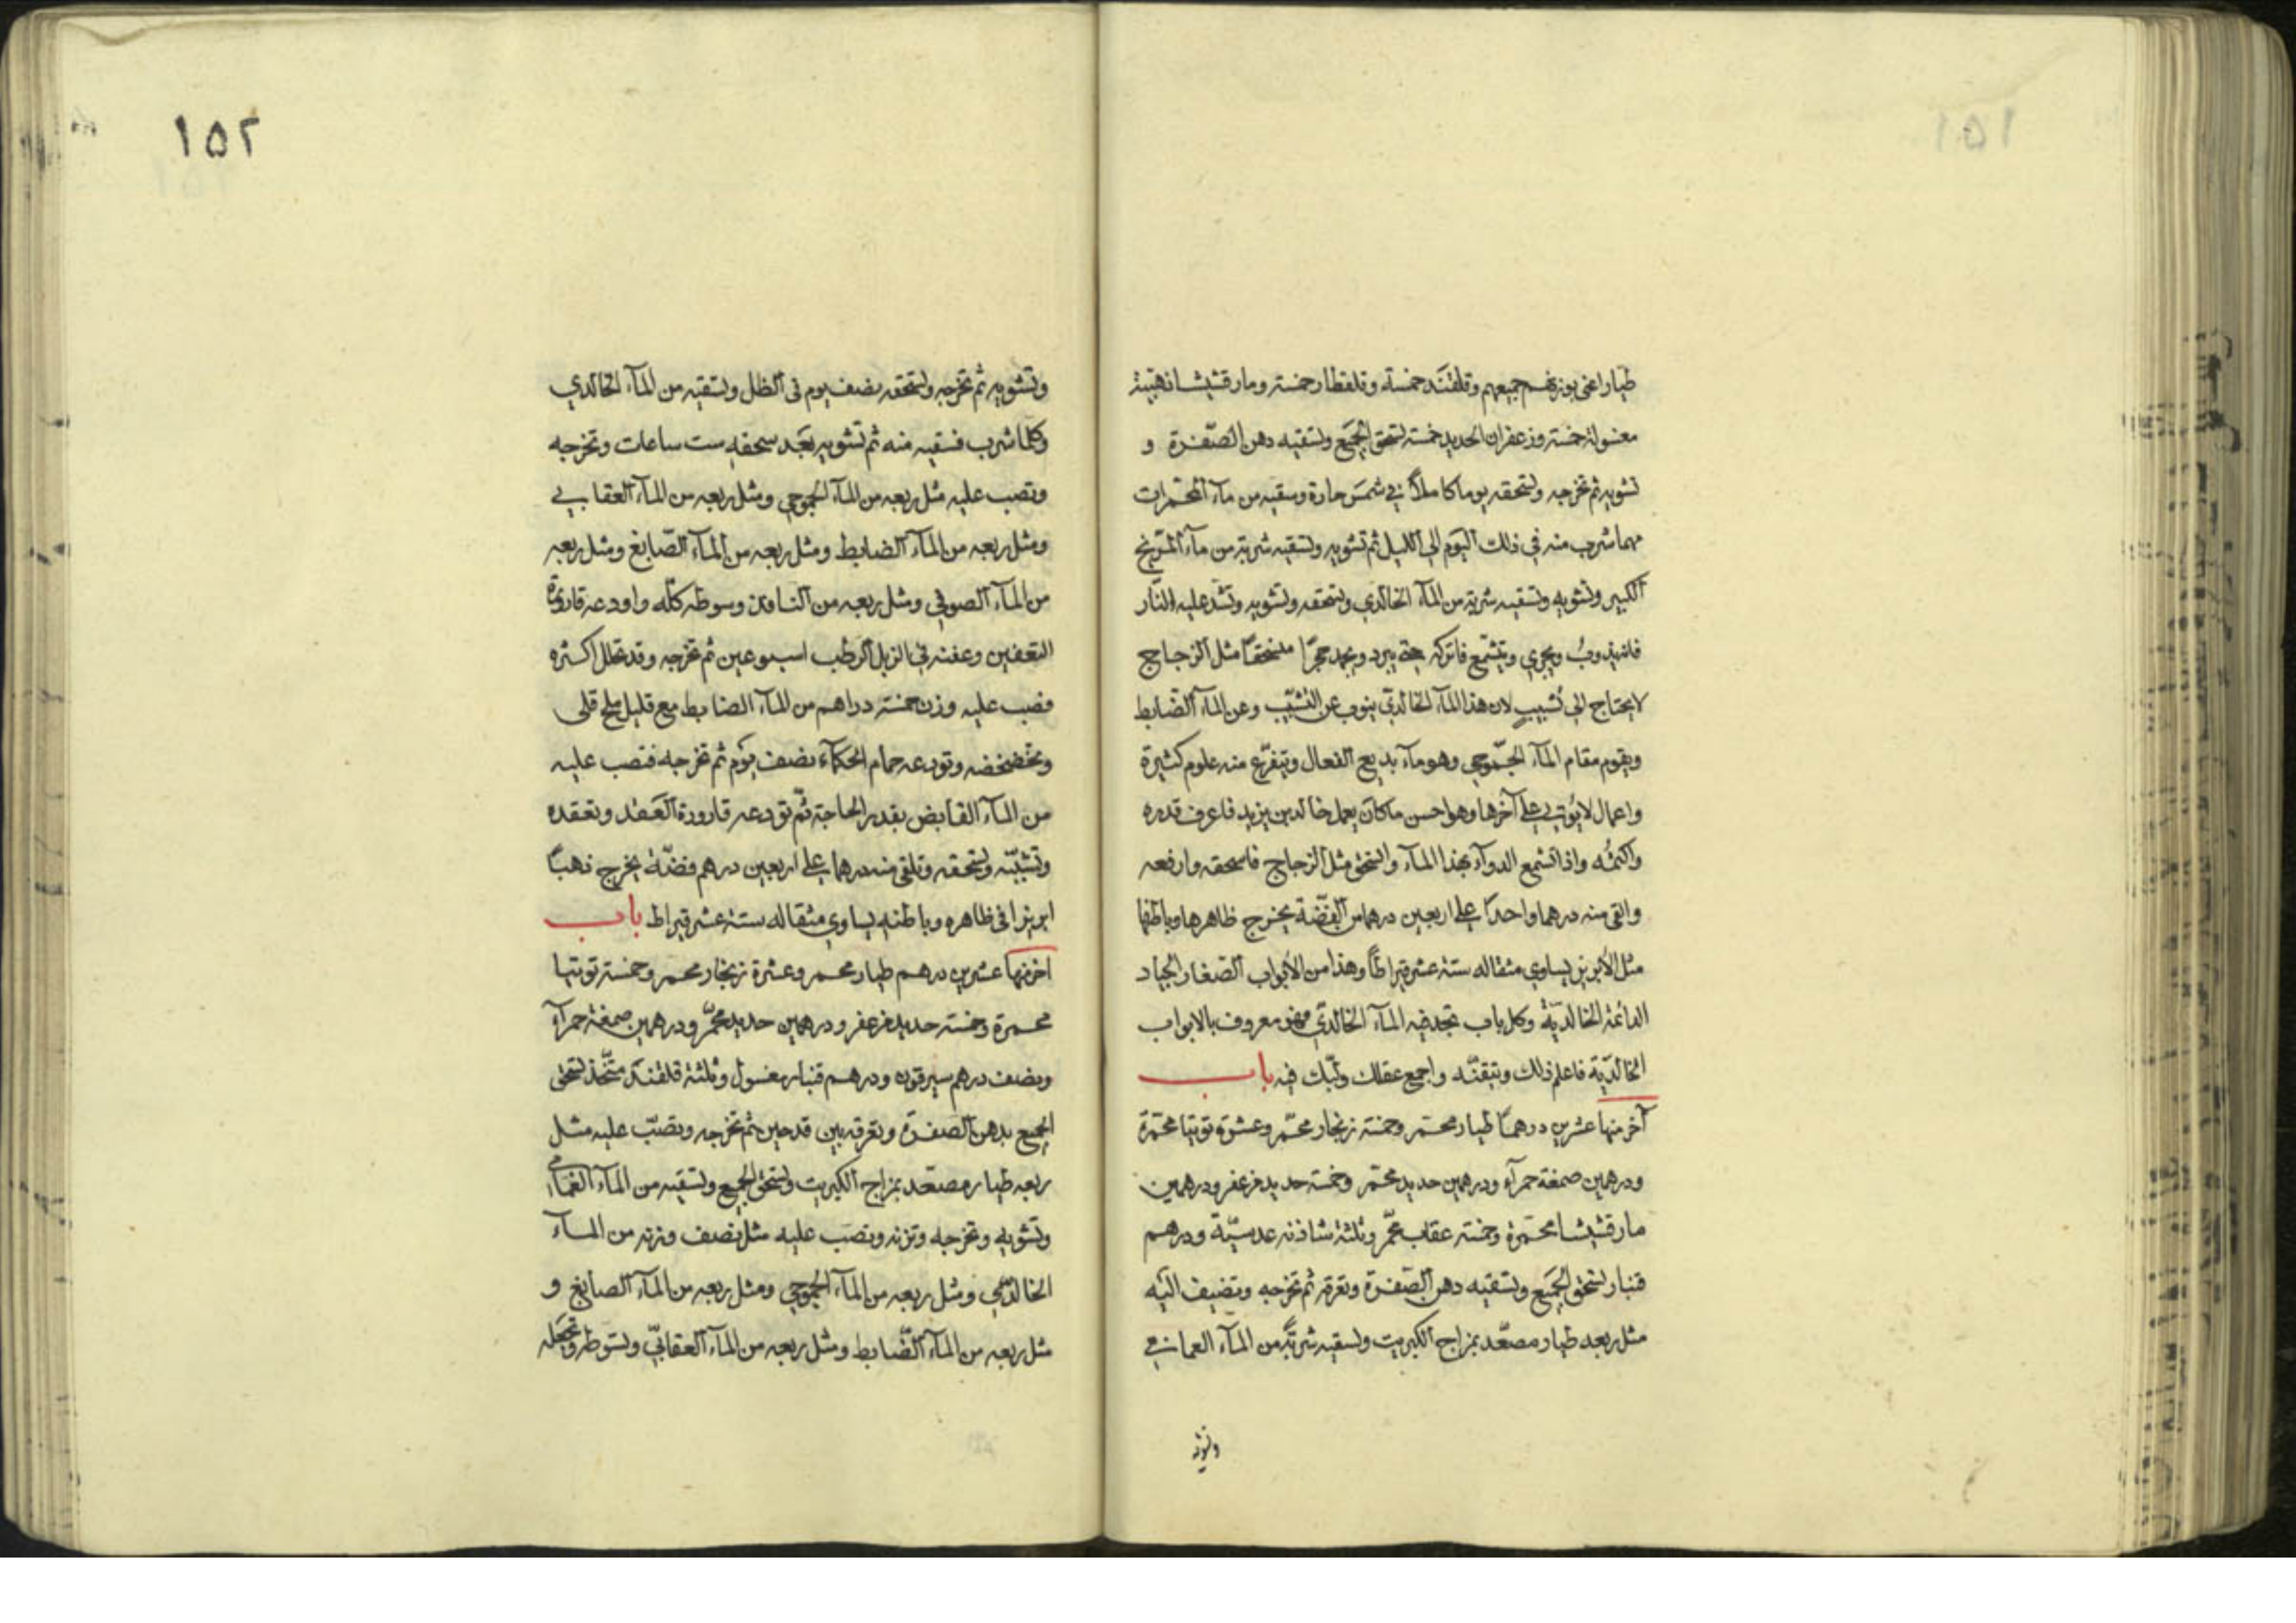 طيار اعني بوزنهم جميعهم وقلقند خمسة وقلقطار خمسة ومارقشيشا ذهبية
مغسولة خمسة وزعفران الحديد خمسة تسحق الجميع وتسقيه دهن الصفرة و
تشويه ثم تخرجه وتسحقه يوما كاملاً في شمس حارة وتسقيه من ماء المحمرات
مهما شرب منه في ذلك اليوم الي الليل ثم تشويه وتسقيه شربة من ماء الزرنيخ
الكبير وتشويه وتسقيه شربة من الماء الخالدي وتسحقه وتشويه وتشد عليه النار
فانه يذوب ويجري ويتشمع فاتركه حتي يبرد ويجمد حجرًا منسحقًا مثل الزجاج
لا يحتاج الي تشبيب لان هذا الماء الخالدي ينوب عن التشبيب وعن الماء الضابط
ويقوم مقام الماء الجموحي وهو ماء بديع الفعال ويتفرع منه علوم كثيرة
واعمال لا يؤتي علي آخرها وهو احسن ما كان يعمل خالد بن يزيد فاعرف قدره
واكتمه واذا تشمع الدواء بهذا الماء وانسحق مثل الزجاج فاسحقه وارفعه
والقي منه درهما واحداً علي اربعين درهما من الفضة يخرج ظاهرها وباطنها
مثل الأبريز يساوي مثقاله ستة عشر قيراطًا وهذا من الأبواب الصغار الجياد
الدائمة الخالدية وكل باب تجد فيه الماء الخالدي فهو معروف بالابواب
الخالدية فاعلم ذلك وتيقنه واجمع عقلك ولبك فيه باب
آخر منها عشرين درهماً طيار محمر وخمسة زنجار محمر وعشرة توتيا محمرة
ودرهمين صمغة حمراء ودرهمين حديد محمر وخمسة حديد مزعفر ودرهمين
مارقشيشا محمرة وخمسة عقاب محمر وثلثة شاذنه عدسية ودرهم
قنبار تسحق الجميع وتسقيه دهن الصفرة وتغرقه ثم تخرجه وتضيف اليه
مثل ربعه طيار مصعد بزاج الكبريت وتسقيه شربة من الماء الغماني
وتشويه
١٥١
١٥٢
وتشويه ثم تخرجه وتسحقه نصف يوم في الظل وتسقيه من الماء الخالدي
وكلما شرب فسقيه منه ثم تشويه بعد سحقه ست ساعات وتخرجه
وتصب عليه مثل ربعه من الماء الجموحي ومثل ربعه من الماء العقابي
ومثل ربعه من الماء الضابط ومثل ربعه من الماء الصابغ ومثل ربعه
من الماء الصوفي ومثل ربعه من النافذ وسوطه كله واودعه قارورة
التعفين وعفنه في الزبل الرطب اسبوعين ثم تخرجه وقد تحلل اكثره
فصب عليه وزن خمسة دراهم من الماء الضابط مع قليل ملح قلي
وتخضخضه وتودعه حمام الحكماء نصف يوم ثم تخرجه فتصب عليه
من الماء القابض بقدر الحاجة ثم تودعه قارورة العقد وتعقده
وتشببه وتسحقه وتلقي منه درهما علي اربعين درهم فضة يخرج ذهبًا
ابريزا في ظاهره وباطنه يساوي مثقاله ستة عشر قيراط باب
اخر منها عشرين درهم طيار محمر وعشرة زنجار محمر وخمسة توتيا
محمرة وخمسة حديد مزعفر ودرهمين حديد محمر ودرهمين صمغة حمراء
ونصف درهم سيرقون ودرهم قنبار مغسول وثلثة قلقند متخذ تسحق
الجميع بدهن الصفرة وتغرقه بين قدحين ثم تخرجه وتصب عليه مثل
ربعه طيار مصعد بزاج الكبريت وتسحق الجميع وتسقيه من الماء الغمامي
وتشويه وتخرجه وتزنه وتصب عليه مثل نصف وزنه من الماء
الخالدي ومثل ربعه من الماء الجموحي ومثل ربعه من الماء الصابغ و
مثل ربعه من الماء الضابط ومثل ربعه من الماء العقابي وتسوطه وتجعله